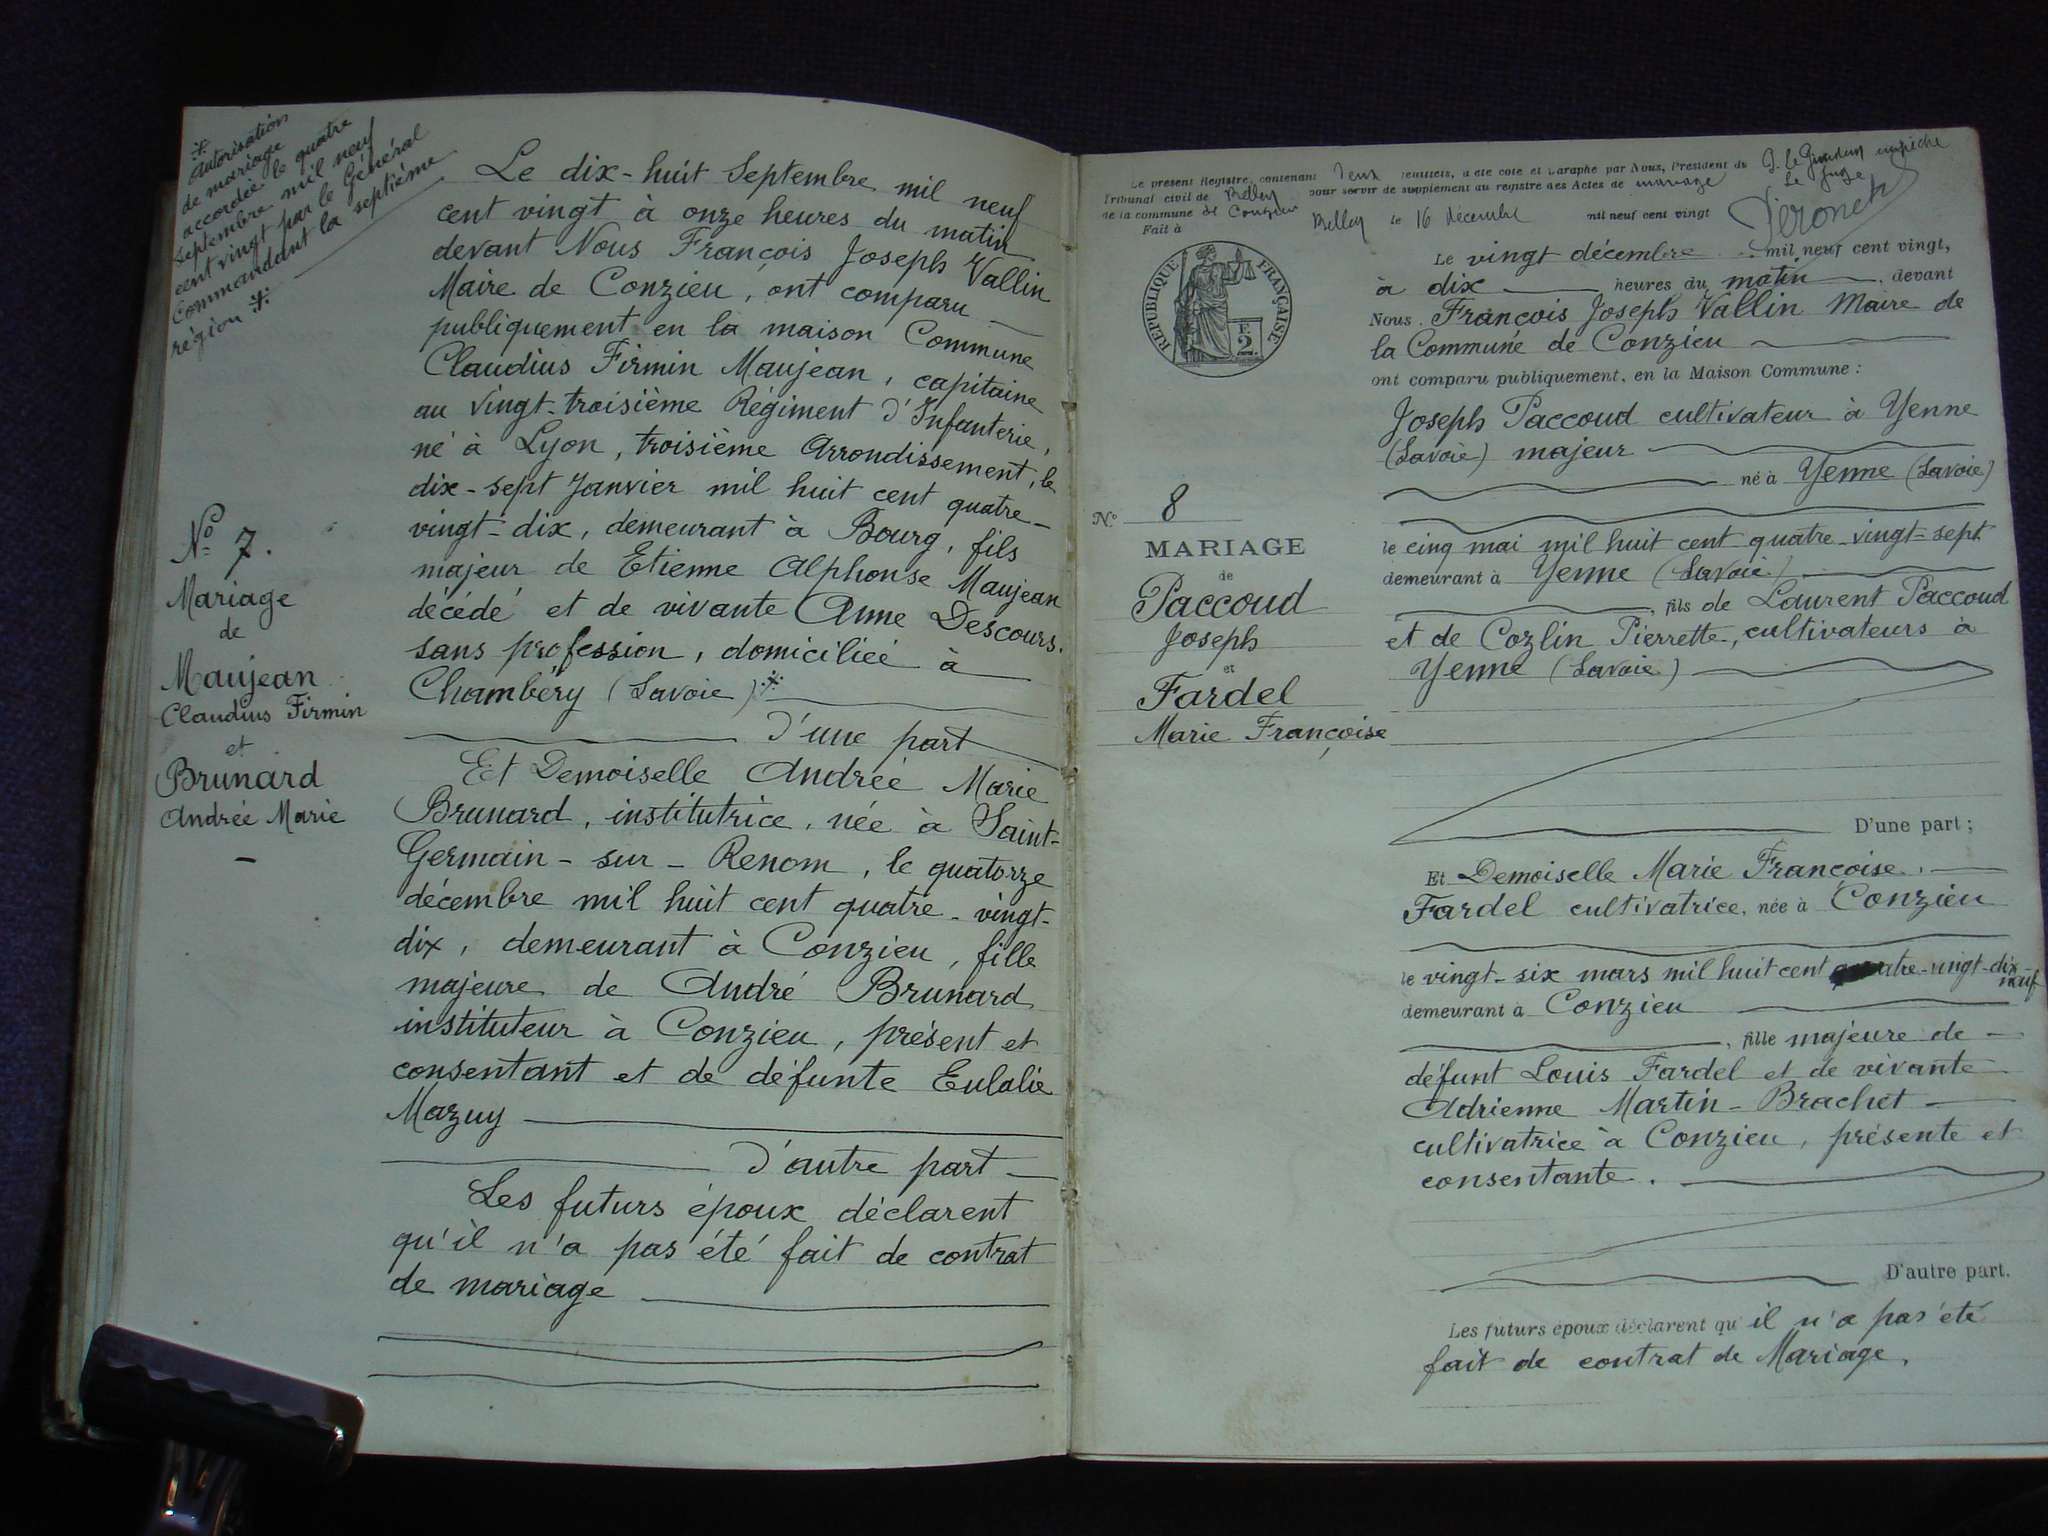 ※
Autorisation
de mariage
accordée le quatre
Septembre mil neuf
cent vingt par le Général
Commandant la septième
région ※
Nº 7.
Mariage
de
Maujean
Claudius Firmin
et
Brunard
Andrée Marie
Le dix-huit Septembre mil neuf
cent vingt à onze heures du matin
devant Nous François Joseph Vallin
Maire de Conzieu, ont comparu
publiquement en la maison Commune
Claudius Firmin Maujean, capitaine
au vingt-troisième Régiment d'Infanterie,
né à Lyon, troisième Arrondissement, le
dix-sept Janvier mil huit cent quatre-
vingt-dix, demeurant à Bourg, fils
majeur de Etienne Alphonse Maujean
décédé et de vivante Anne Descours
sans profession, domiciliée à
Chambéry (Savoie) ※
d'une part
Et Demoiselle Andrée Marie
Brunard, institutrice, née à Saint-
Germain-sur-Renom, le quatorze
décembre mil huit cent quatre-vingt-
dix, demeurant à Conzieu, fille
majeure de André Brunard
instituteur à Conzieu, présent et
consentant et de défunte Eulalie
Mazuy
d'autre part
Les futurs époux déclarent
qu'il n'a pas été fait de contrat
de mariage
Le présent Registre, contenant Deux feuillets, a été coté et paraphé par Nous, Président du
Tribunal civil de Belley pour servir de supplément au registre des Actes de mariage
de la commune de Conzieu
Fait à Belley le 16 décembre mil neuf cent vingt
empêché
Le Juge
RÉPUBLIQUE FRANÇAISE
2
Le vingt décembre mil neuf cent vingt,
à dix heures du matin, devant
Nous François Joseph Vallin Maire de
la Commune de Conzieu
ont comparu publiquement, en la Maison Commune :
Joseph Paccoud cultivateur à Yenne
(Savoie) majeur
né à Yenne (Savoie)
le cinq mai mil huit cent quatre-vingt-sept
demeurant à Yenne (Savoie)
, fils de Laurent Paccoud
et de Cozlin Pierrette, cultivateurs à
Yenne (Savoie)
D'une part ;
N° 8
MARIAGE
de
Paccoud
Joseph
et
Fardel
Marie Françoise
Et Demoiselle Marie Françoise
Fardel cultivatrice, née à Conzieu
le vingt-six mars mil huit cent quatre-vingt-dix-
neuf
demeurant à Conzieu
, fille majeure de
défunt Louis Fardel et de vivante
Adrienne Martin-Brachet
cultivatrice à Conzieu, présente et
consentante.
D'autre part.
Les futurs époux déclarent qu'il n'a pas été
fait de contrat de Mariage.